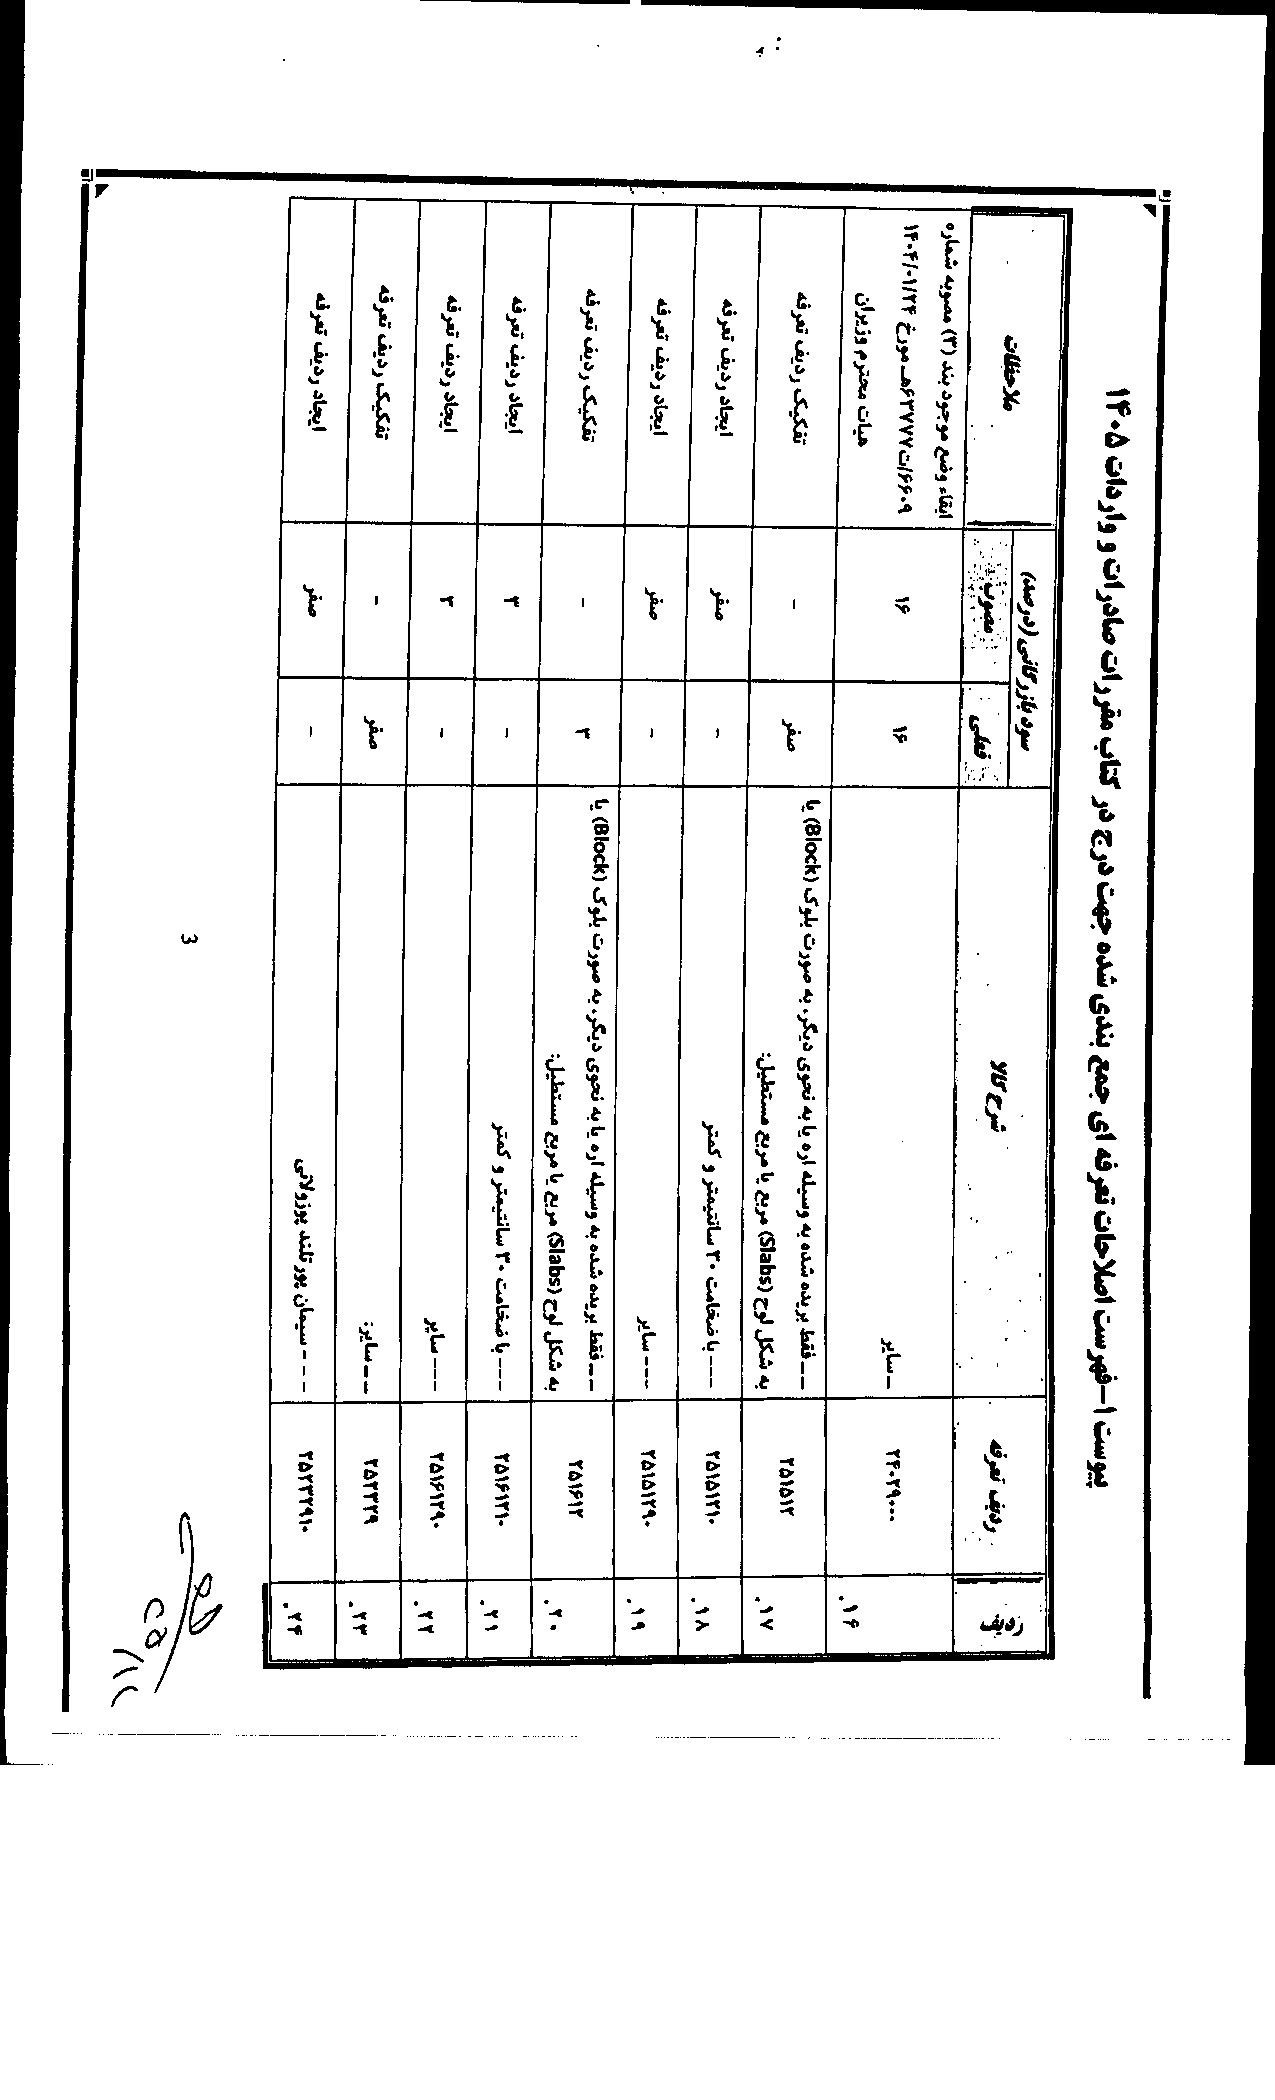 پیوست ۱-فهرست اصلاحات تعرفه ای جمع بندی شده جهت درج در کتاب مقررات صادرات و واردات ۱۴۰۵
ردیف ردیف تعرفه شرح کالا سود بازرگانی (درصد) ملاحظات
فعلی مصوب
۱۶. ۲۴۰۲۹۰۰۰ – سایر ۱۶ ۱۶ ابقاء وضع موجود بند (۳) مصوبه شماره
۶۶۰۹/ت۶۳۷۷۷هـ مورخ ۱۴۰۴/۰۱/۲۴
هیات محترم وزیران
۱۷. ۲۵۱۵۱۲ – – فقط بریده شده به وسیله اره یا به نحوی دیگر، به صورت بلوک (Block) یا
به شکل لوح (Slabs) مربع یا مربع مستطیل: صفر - تفکیک ردیف تعرفه
۱۸. ۲۵۱۵۱۲۱۰ --- با ضخامت ۳۰ سانتیمتر و کمتر - صفر ایجاد ردیف تعرفه
۱۹. ۲۵۱۵۱۲۹۰ --- سایر - صفر ایجاد ردیف تعرفه
۲۰. ۲۵۱۶۱۲ – – فقط بریده شده به وسیله اره یا به نحوی دیگر، به صورت بلوک (Block) یا
به شکل لوح (Slabs) مربع یا مربع مستطیل: ۳ - تفکیک ردیف تعرفه
۲۱. ۲۵۱۶۱۲۱۰ --- با ضخامت ۳۰ سانتیمتر و کمتر - ۳ ایجاد ردیف تعرفه
۲۲. ۲۵۱۶۱۲۹۰ --- سایر - ۳ ایجاد ردیف تعرفه
۲۳. ۲۵۲۳۲۹ – – سایر: صفر - تفکیک ردیف تعرفه
۲۴. ۲۵۲۳۲۹۱۰ - - - سیمان پورتلند پوزولانی - صفر ایجاد ردیف تعرفه
3